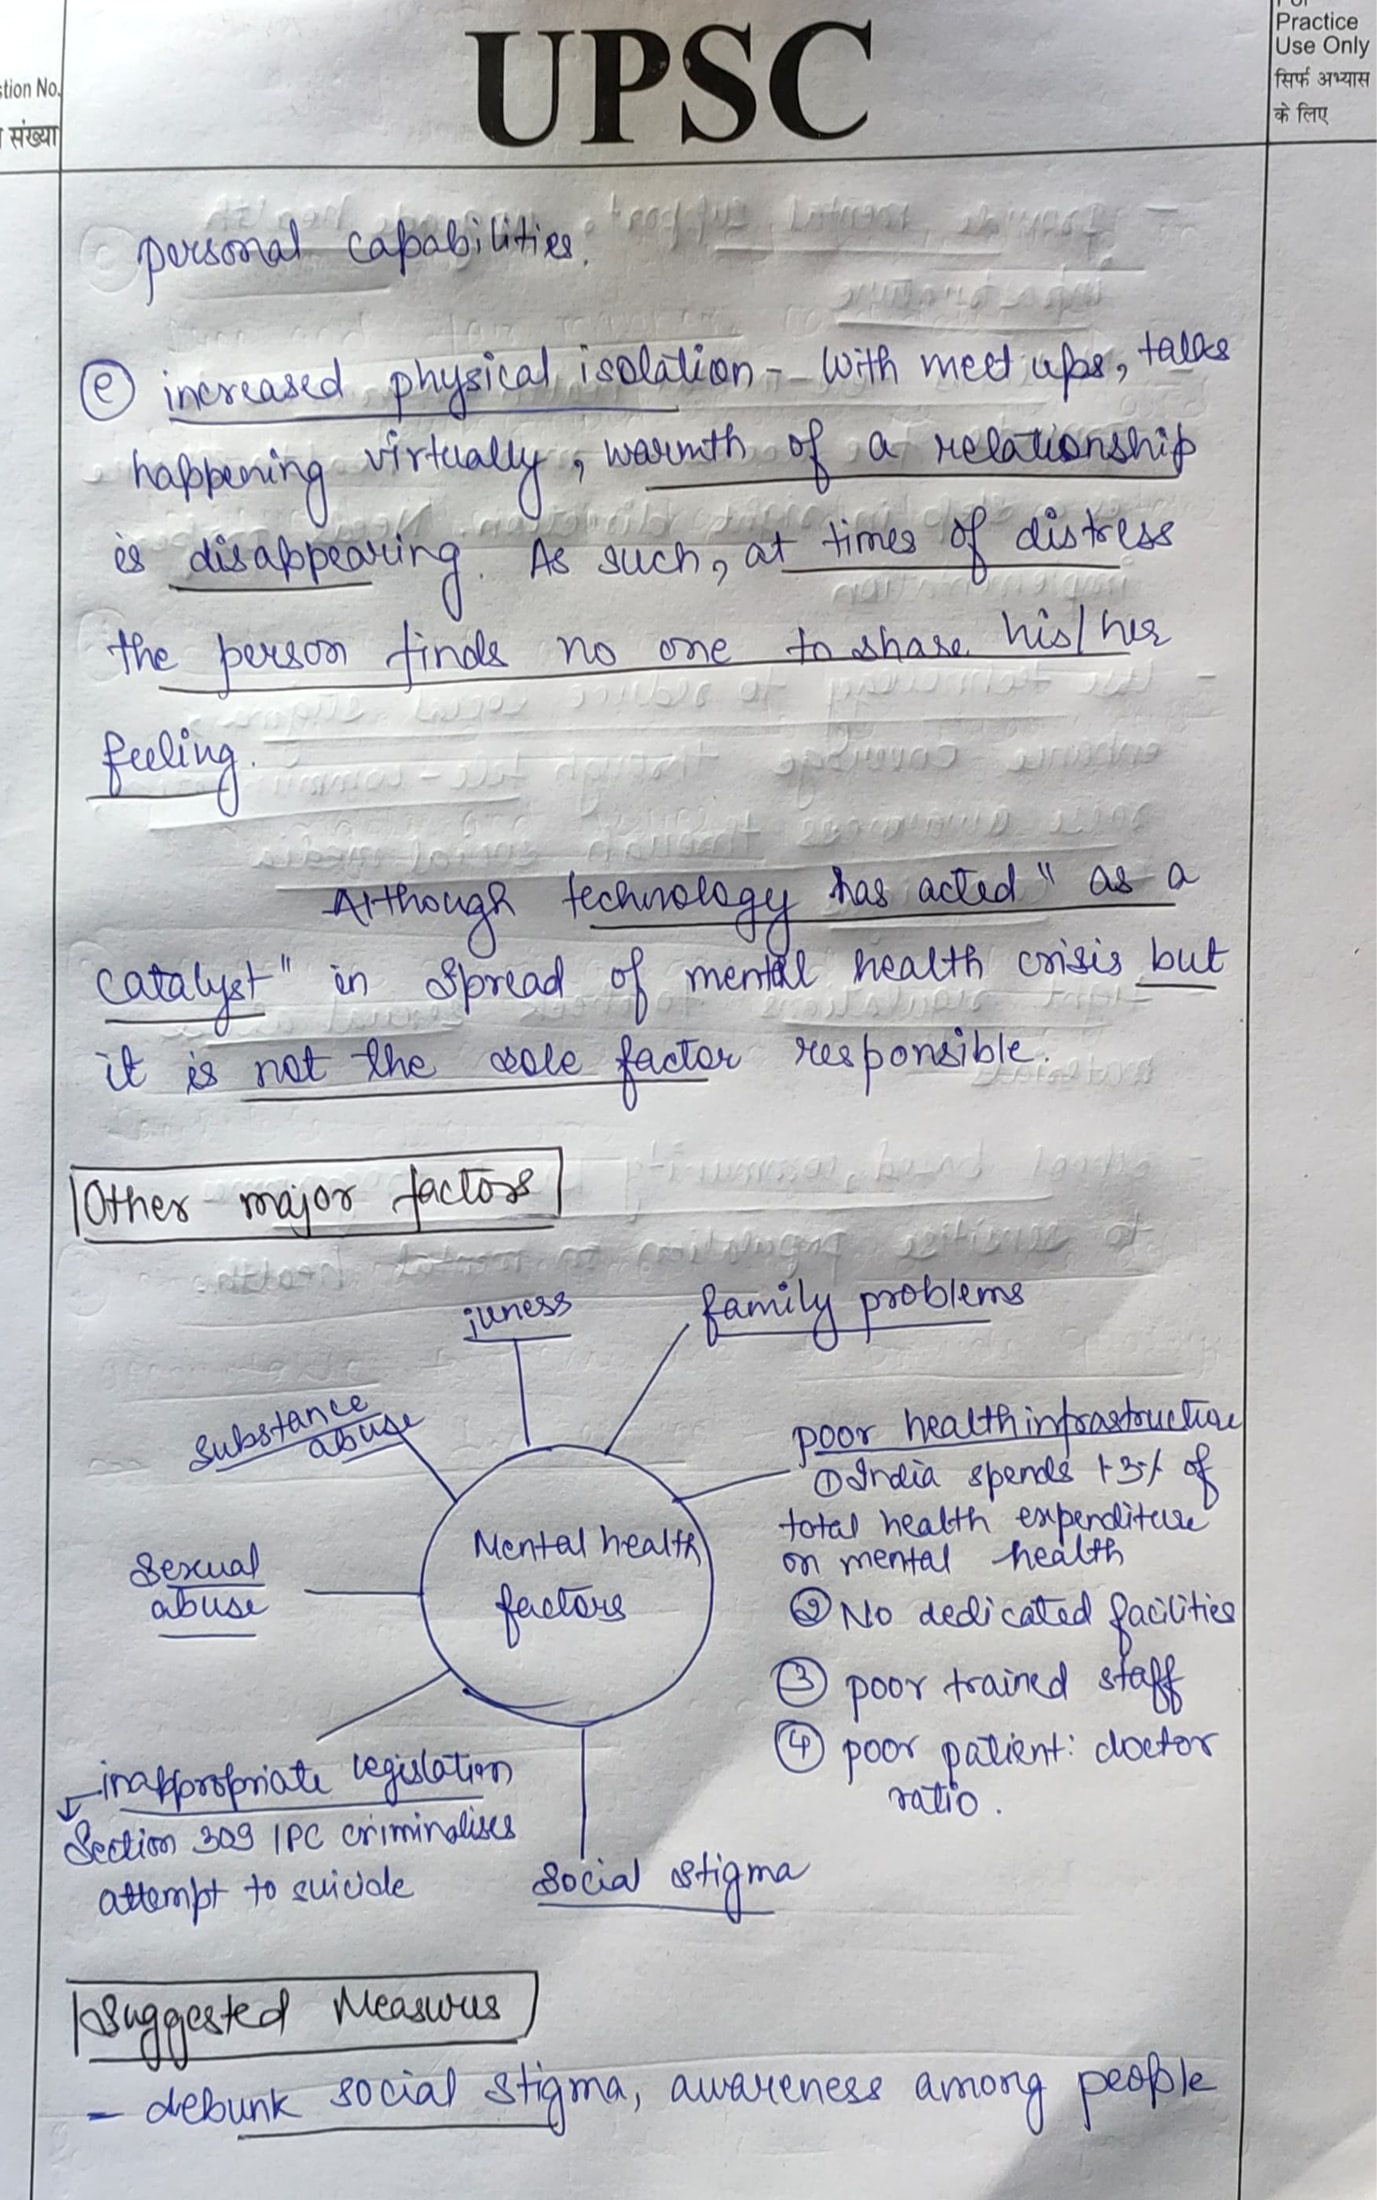 UPSC
stion No.
संख्या
Practice
Use Only
सिर्फ अभ्यास
के लिए
personal capabilities.
(e) increased physical isolation - With meet ups, talks
happening virtually, warmth of a relationship
is disappearing. As such, at times of distress
the person finds no one to share his/her
feeling.
Although technology has acted " as a
catalyst" in spread of mental health crisis but
it is not the sole factor responsible.
Other major factors
illness
family problems
substance
abuse
sexual
abuse
Mental health
factors
poor health infrastructure
① India spends 1.3% of
total health expenditure
on mental health
② No dedicated facilities
③ poor trained staff
④ poor patient: doctor
ratio.
inappropriate legislation
Section 309 IPC criminalises
attempt to suicide
social stigma
Suggested Measures
- debunk social stigma, awareness among people